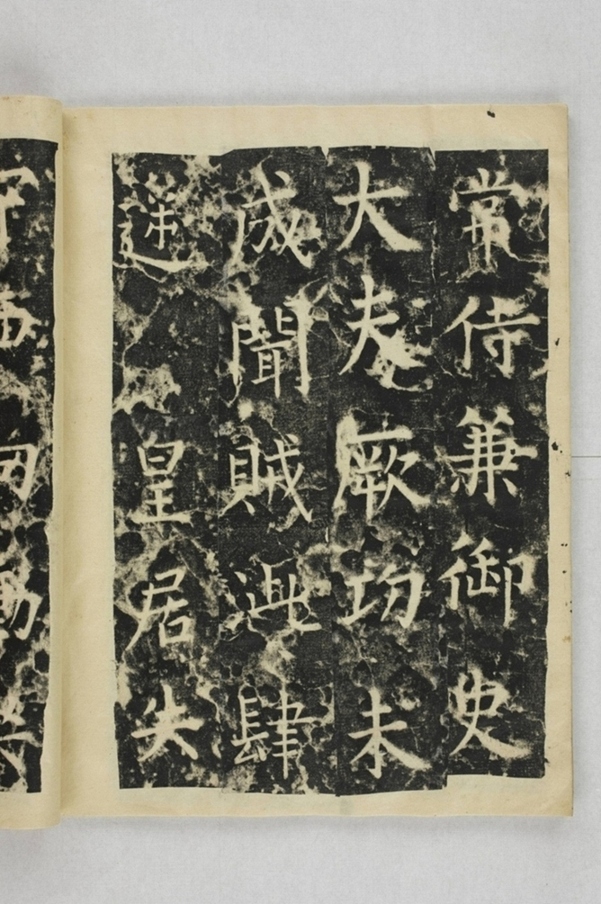 常侍兼御史
大夫厥功未
成聞賊泚肆
逆 皇居失